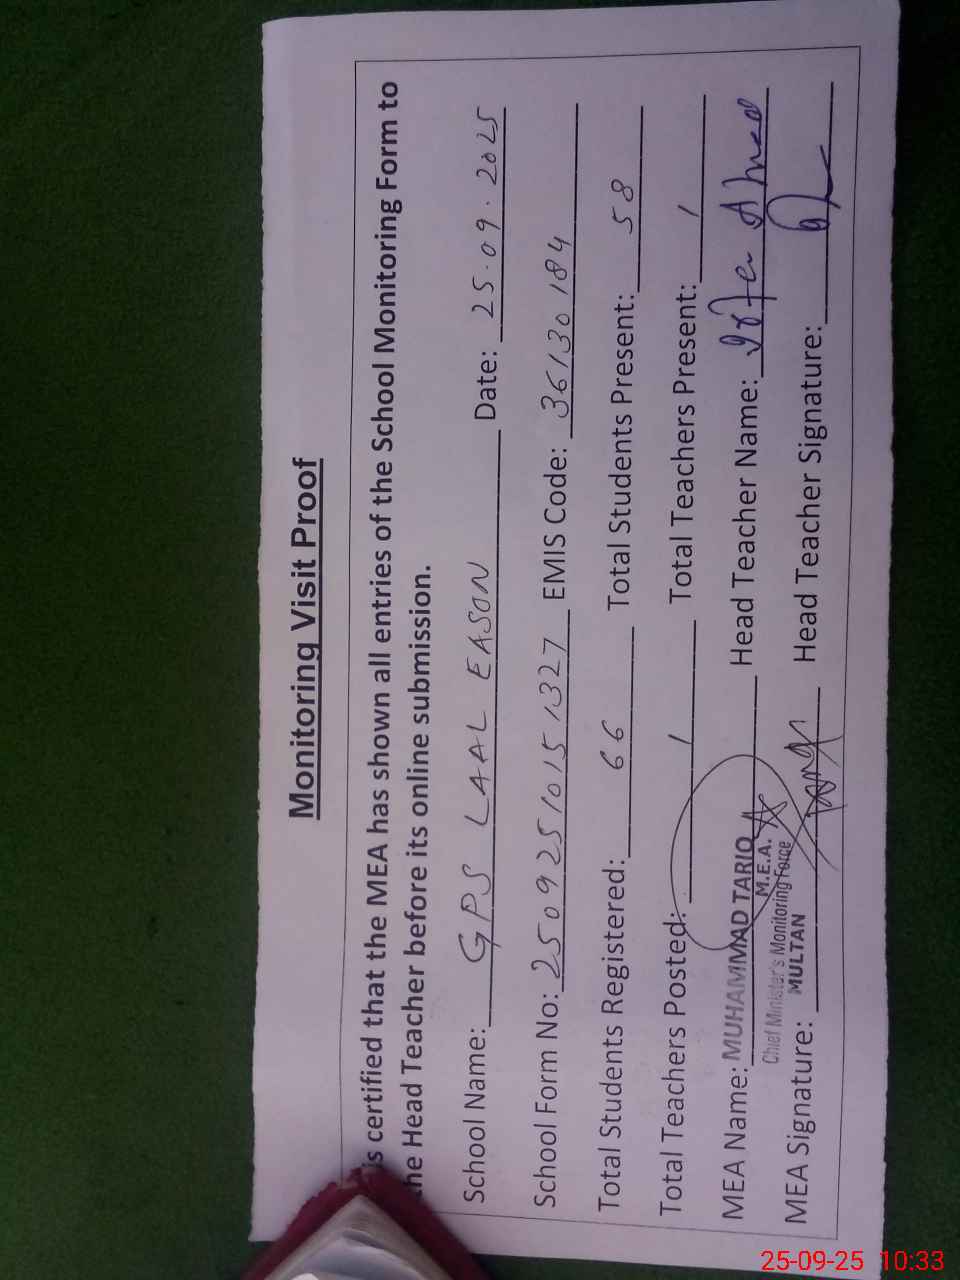 Monitoring Visit Proof
is certified that the MEA has shown all entries of the School Monitoring Form to
he Head Teacher before its online submission.
School Name: GPS LAAL EASON Date: 25.09.2025
School Form No: 25092510151327 EMIS Code: 36130184
Total Students Registered: 66 Total Students Present: 58
Total Teachers Posted: 1 Total Teachers Present: 1
MEA Name: MUHAMMAD TARIQ Head Teacher Name: Ahmed
M.E.A.
Chief Minister's Monitoring Force
MULTAN
MEA Signature: Head Teacher Signature:
25-09-25 10:33